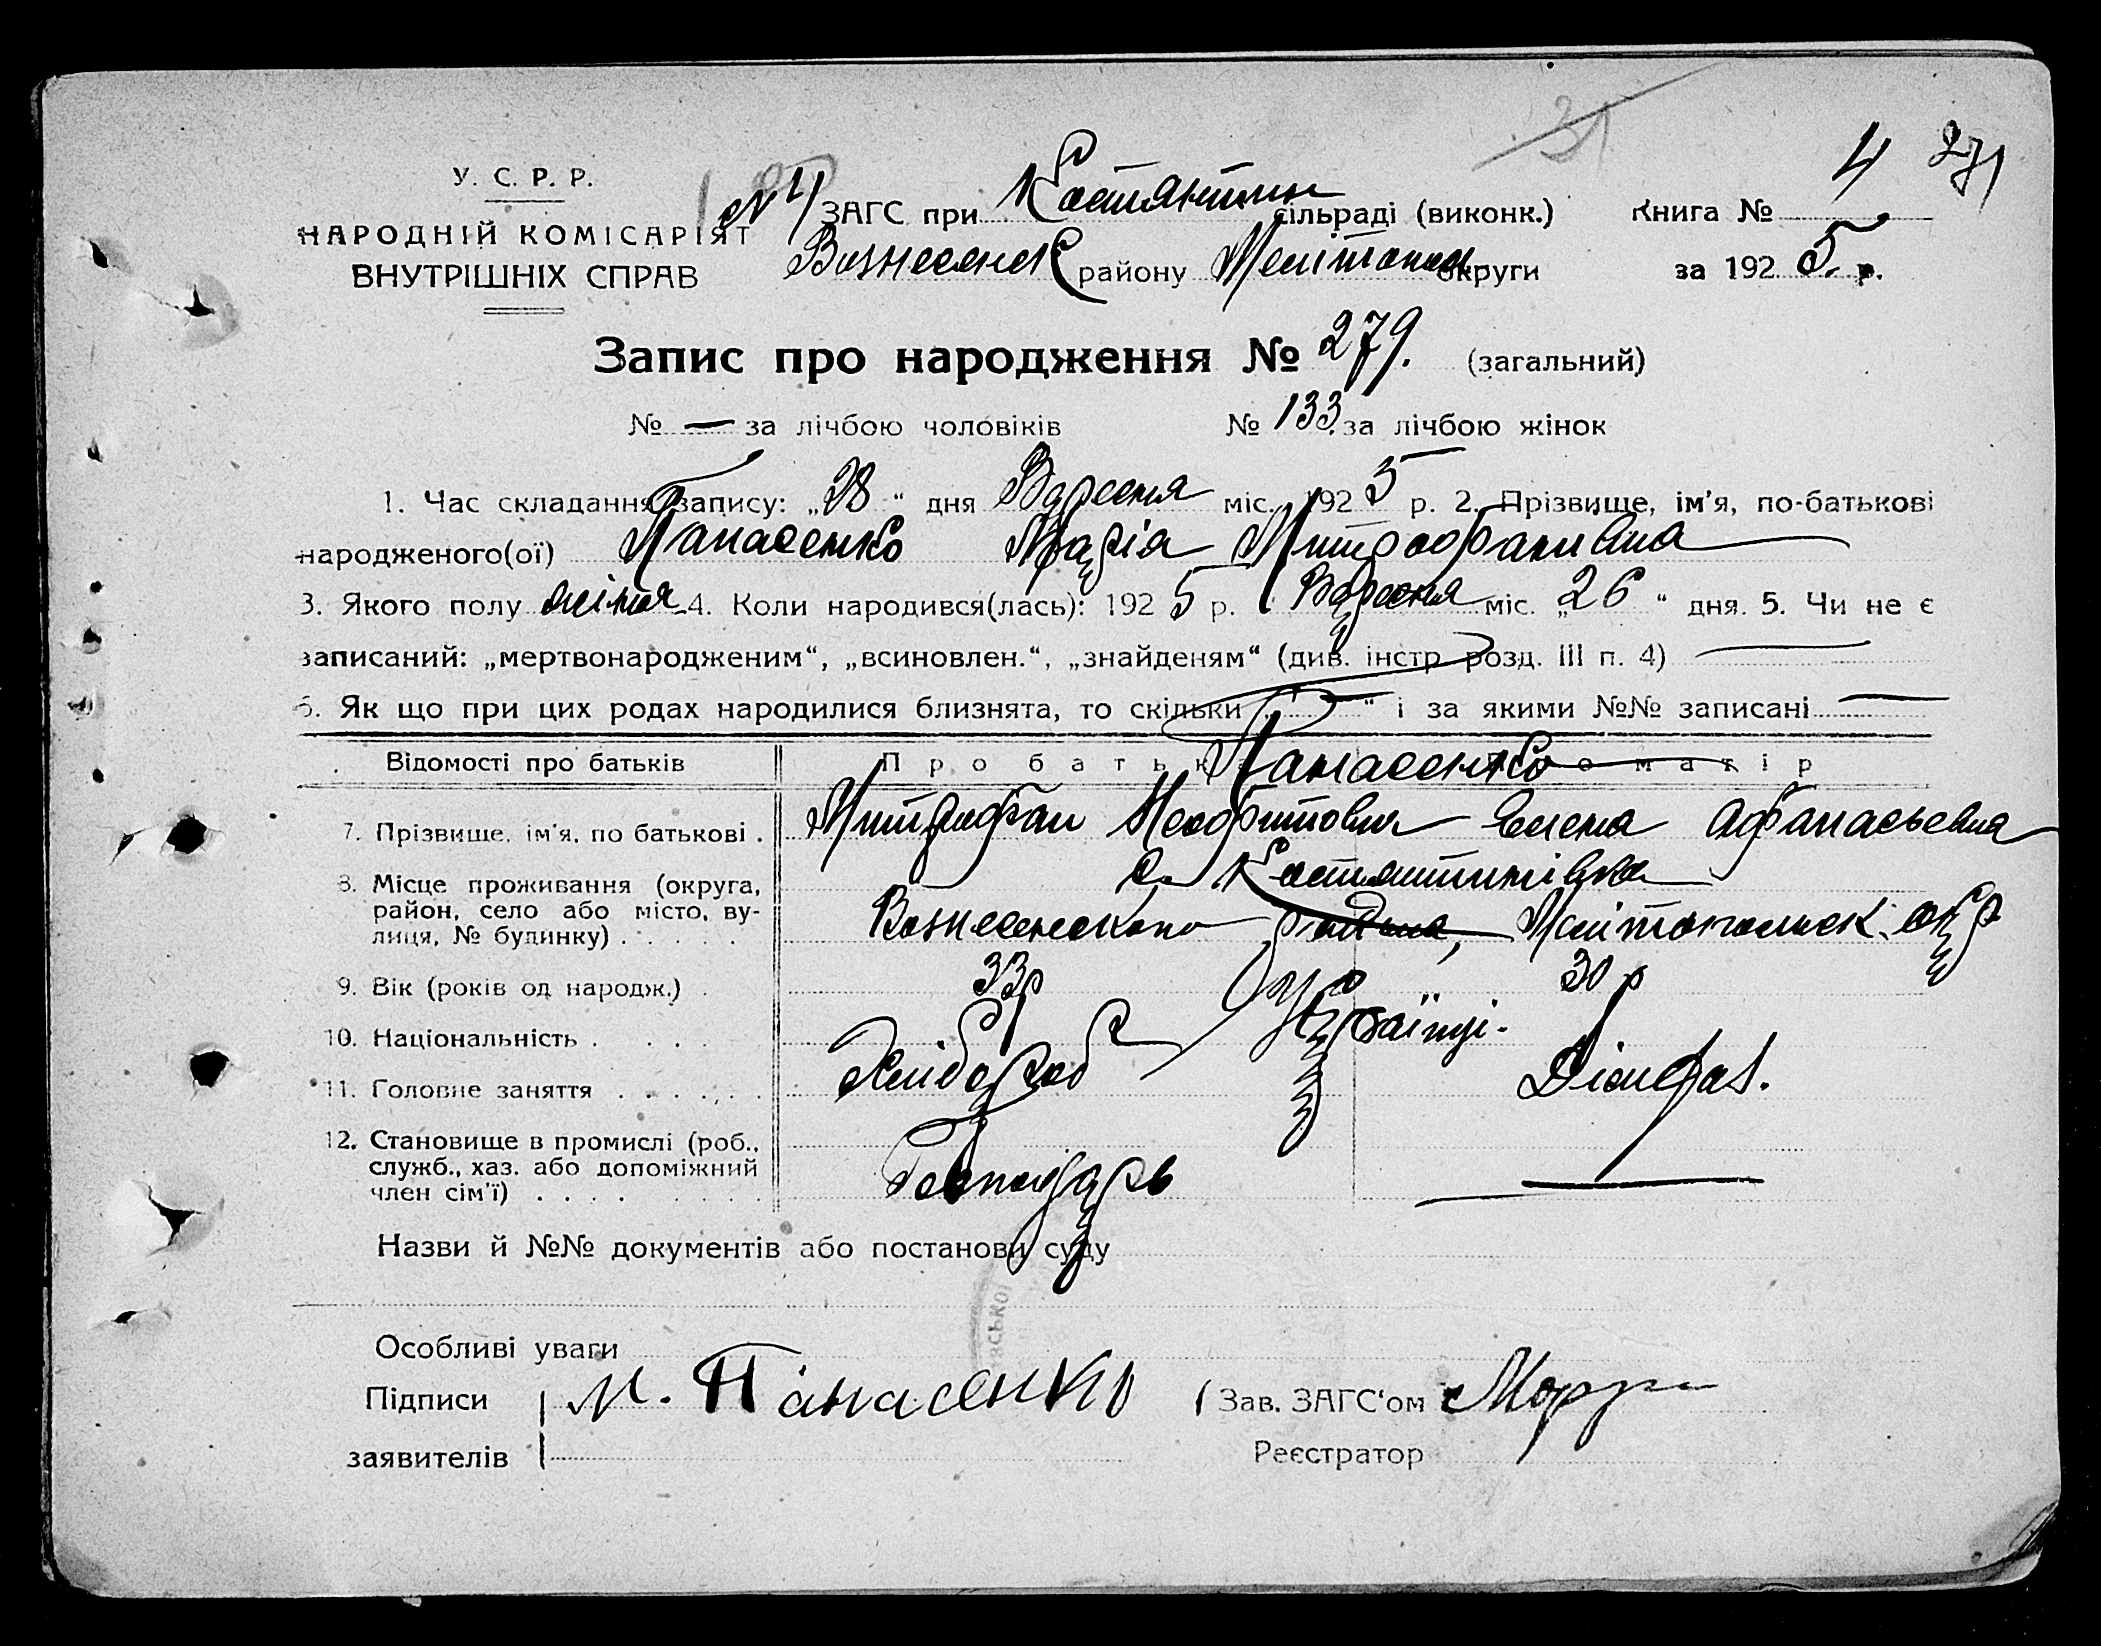 31
4 271
У. С. Р. Р.
НАРОДНІЙ КОМІСАРІЯТ
ВНУТРІШНІХ СПРАВ
№ 4 ЗАГС при Костянтин сільраді (виконк.) Книга №
Вознесенск району Мелітопол округи за 192 5 р.
Запис про народження № 279. (загальний)
№ — за лічбою чоловіків № 133 за лічбою жінок
1. Час складання запису: „28“ дня Вересня міс. 192 5 р. 2. Прізвище, ім'я, по-батькові
народженого(ої) Панасенко Марія Митрофанівна
3. Якого полу жіноч 4. Коли народився(лась): 192 5 р. Вересня міс. „26“ дня. 5. Чи не є
записаний: „мертвонародженим“, „всиновлен.“, „знайденям“ (див. інстр розд. III п. 4) —
6. Як що при цих родах народилися близнята, то скільки „—“ і за якими №№ записані —
Відомості про батьків Про батька Про матір
Панасенко
7. Прізвище, ім'я, по батькові . Митрофан Неофитович Елена Афанасьевна
8. Місце проживання (округа, с. Костянтинівка
район, село або місто, ву-
лиця, № будинку) . . . . . Вознесенского району, Мелітопольск. окр
9. Вік (років од народж.) . 33 р 30 р
10. Національність . . . . Українці.
11. Головне заняття . . . . . . Хлібороб
12. Становище в промислі (роб.,
служб., хаз. або допоміжний Господарь —
член сім'ї) . . . . . . . .
Назви й №№ документів або постанови суду
Особливі уваги
Підписи М. Панасенко Зав. ЗАГС'ом
заявителів Реєстратор